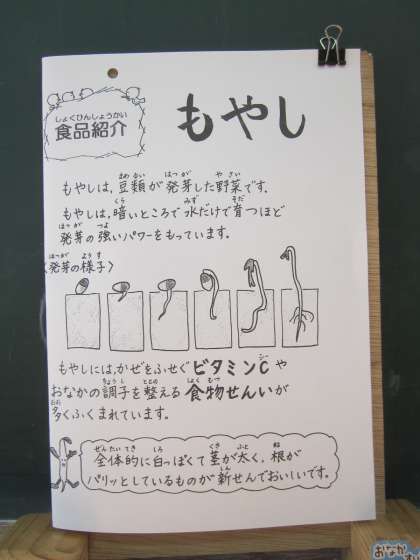 しょくひんしょうかい
食品紹介
もやし
もやしは、豆類が発芽した野菜です。
もやしは、暗いところで水だけで育つほど
発芽の強いパワーをもっています。
〈発芽の様子〉
もやしには、かぜをふせぐビタミンCや
おなかの調子を整える食物せんいが
多くふくまれています。
全体的に白っぽくて茎が太く、根が
パリッとしているものが新せんでおいしいです。
おなか